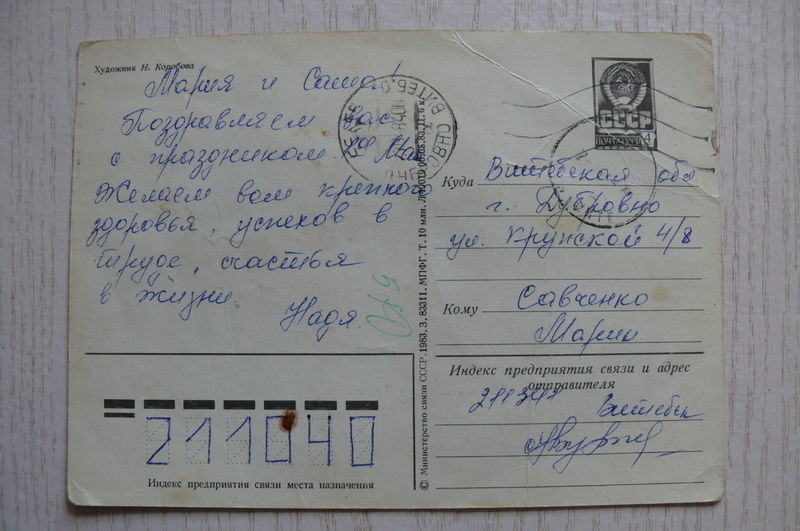 Художник Н. Коробова
Мария и Саша!
Поздравляем Вас
с праздником Мая
Желаем вам крепкого
здоровья, успехов в
труде, счастья
в жизни.
Надя.
СССР
4
Куда Витебская обл
г. Дубровно
ул. Крупской 4/8
Кому Савченко
Марии
Индекс предприятия связи и адрес
отправителя
Витебск
211040
Индекс предприятия связи места назначения
© Министерство связи СССР. 1983. З. 83311. МПФГ. Т. 10 млн.